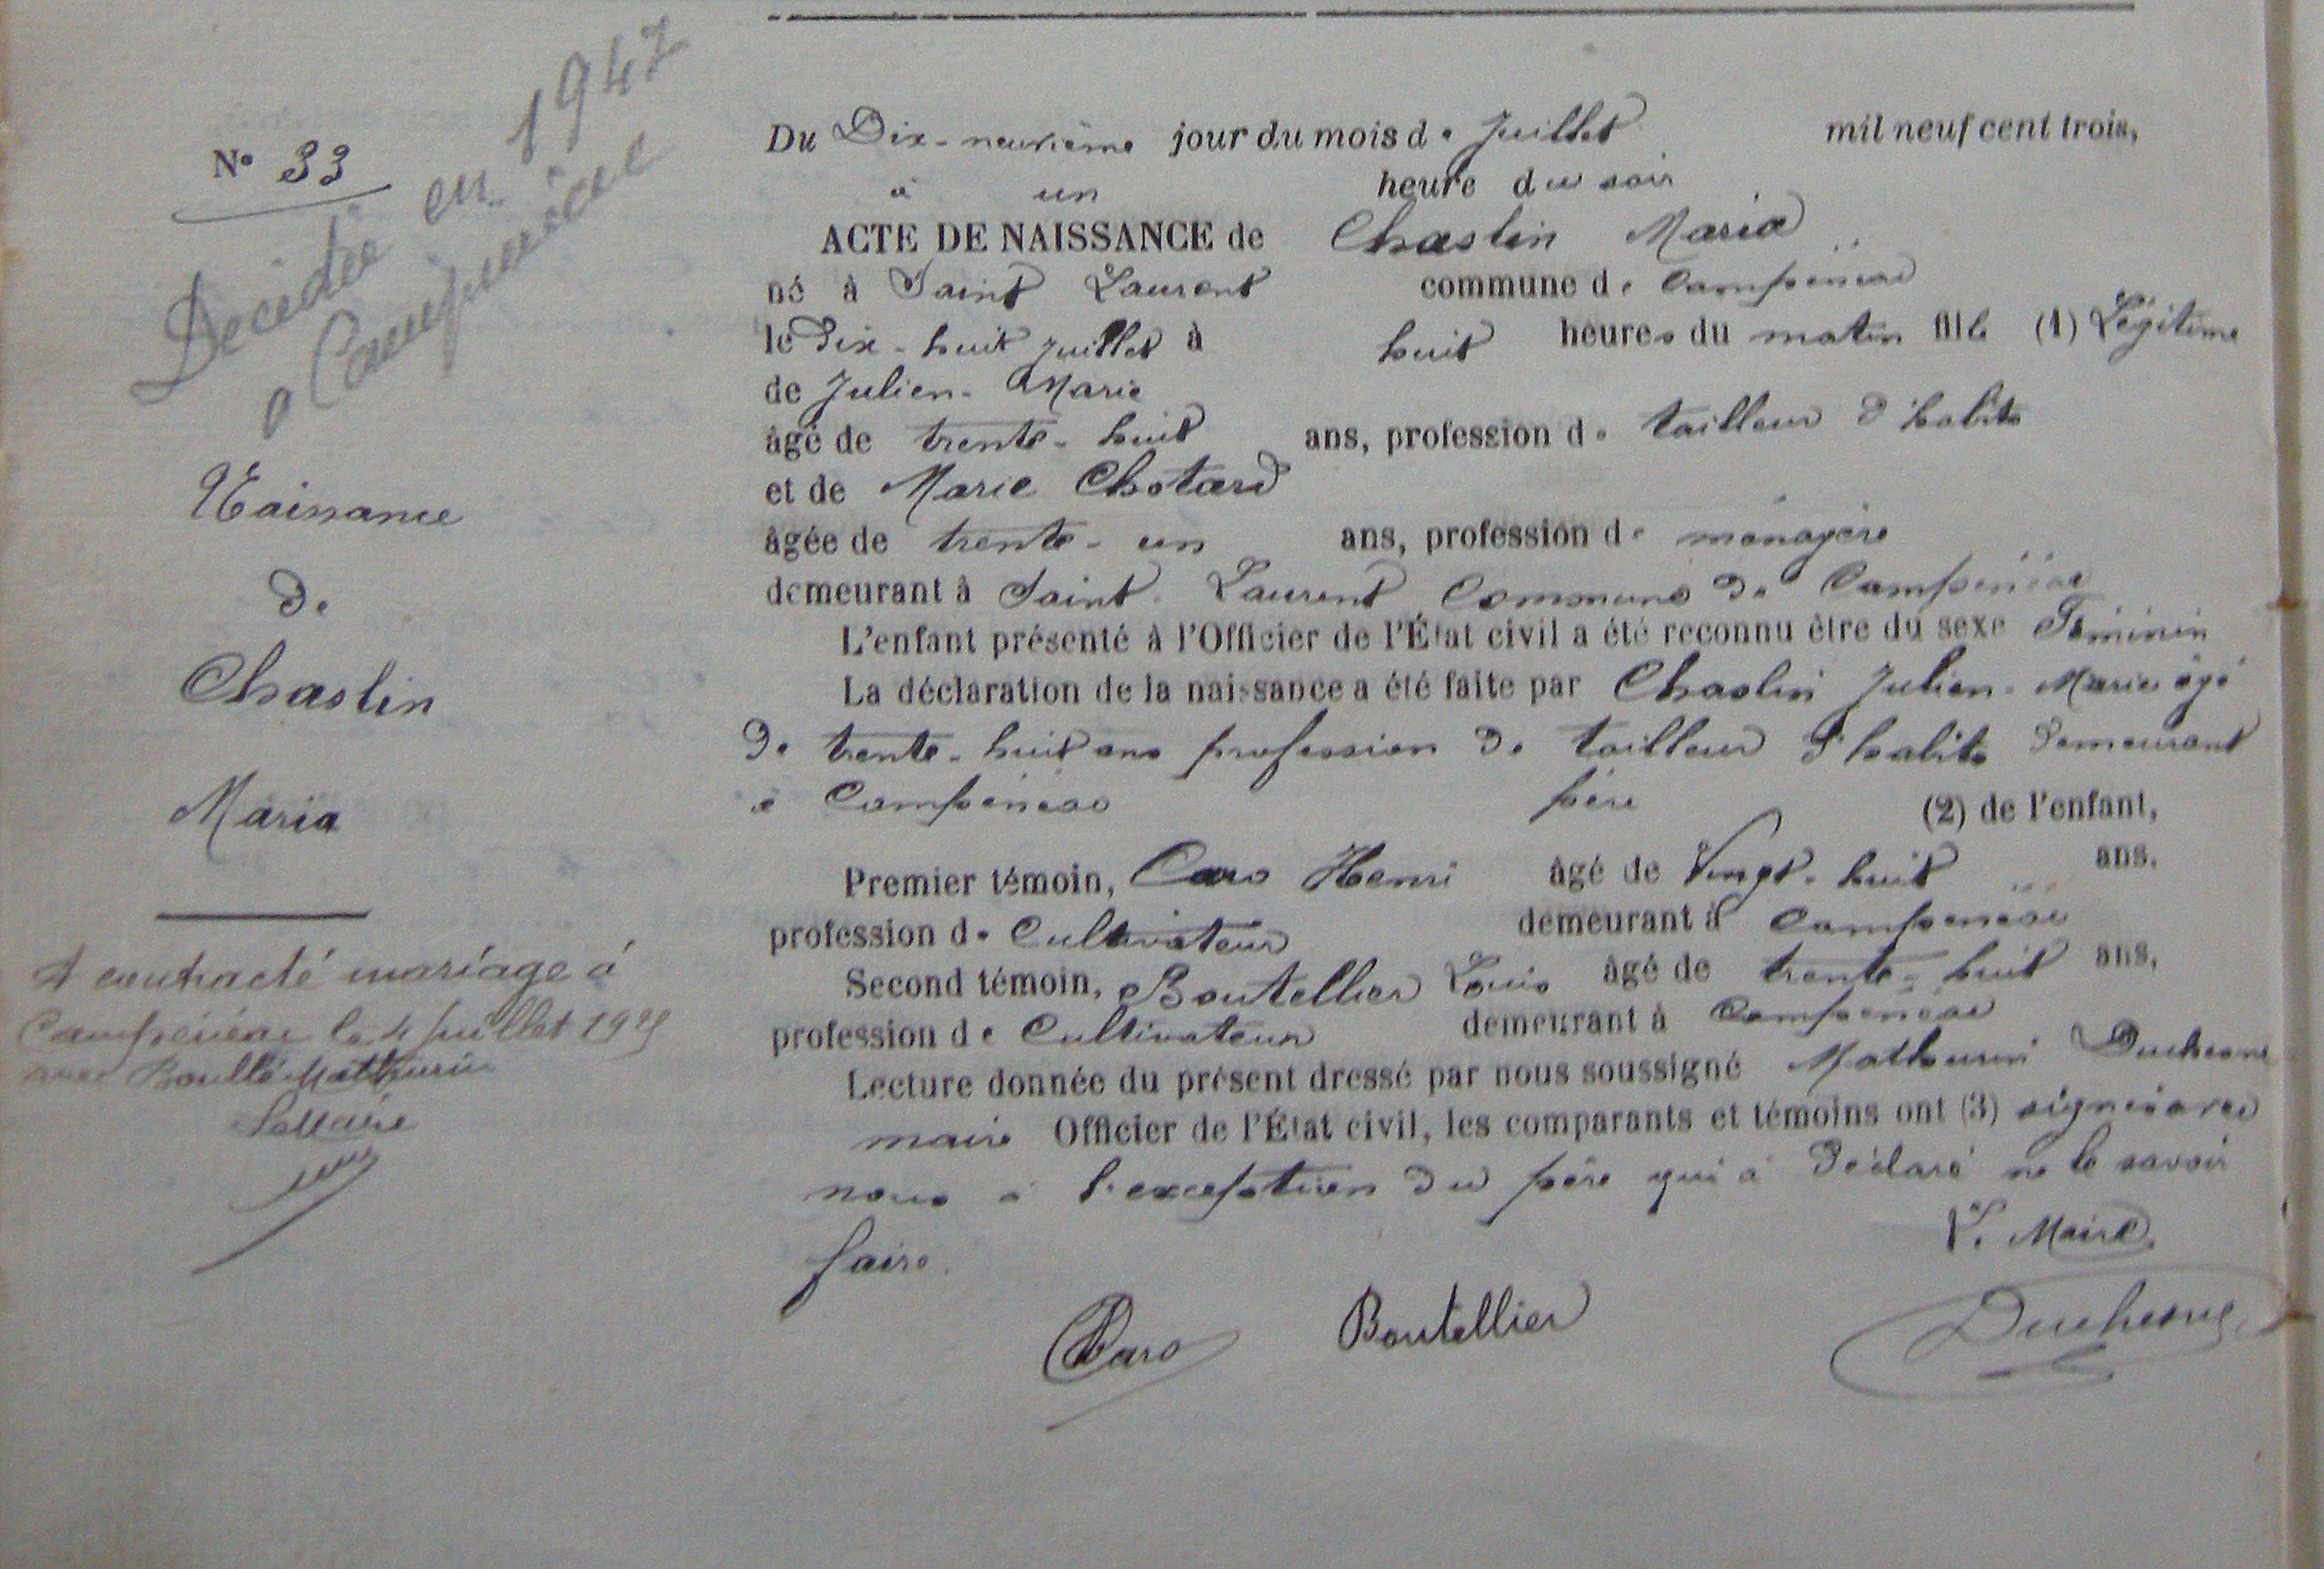 N° 33
Décédée en 1947
a Campénéac
Naissance
de
Chastin
Maria
A contracté mariage à
Campénéac le 4 juillet 1925
avec Boullé Mathurin
Le Maire
Du Dix-neuvième jour du mois de Juillet mil neuf cent trois,
à un heure du soir
ACTE DE NAISSANCE de Chastin Maria
né à Saint Laurent commune de Campénéac
le Dix-huit juillet à huit heures du matin fille (1) Légitime
de Julien-Marie
âgé de trente-huit ans, profession de tailleur d'habits
et de Marie Chotard
âgée de trente-un ans, profession de ménagère
demeurant à Saint-Laurent Commune de Campénéac
L'enfant présenté à l'Officier de l'État civil a été reconnu être du sexe Féminin
La déclaration de la naissance a été faite par Chastin Julien-Marie âgé
de trente-huit ans profession de tailleur d'habits demeurant
à Campénéac père (2) de l'enfant,
Premier témoin, Caro Henri âgé de Vingt-huit ans.
profession de Cultivateur demeurant à Campénéac
Second témoin, Boutellier Louis âgé de trente-huit ans,
profession de Cultivateur demeurant à Campénéac
Lecture donnée du présent dressé par nous soussigné Mathurin Duchesne
maire Officier de l'État civil, les comparants et témoins ont (3) signés avec
nous à l'exception du père qui a déclaré ne le savoir
faire.
L. Maire.
Caro Boutellier Duchesne